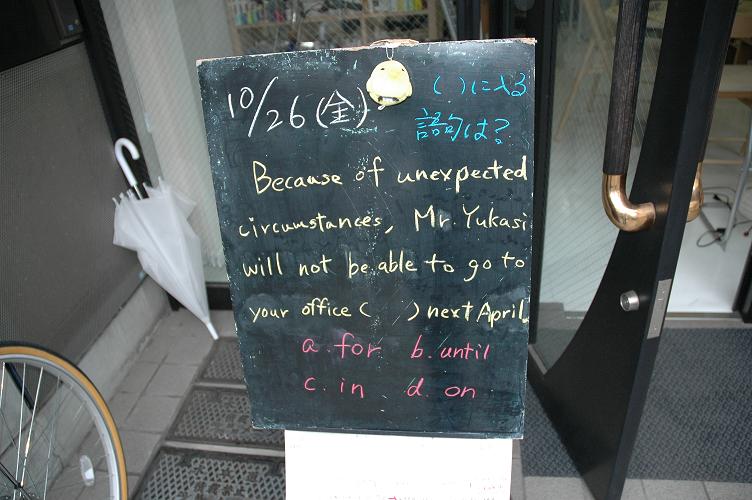 10/26(金)
( )に入る
語句は?
Because of unexpected
circumstances, Mr. Yukasi
will not be able to go to
your office ( ) next April.
a. for b. until
c. in d. on